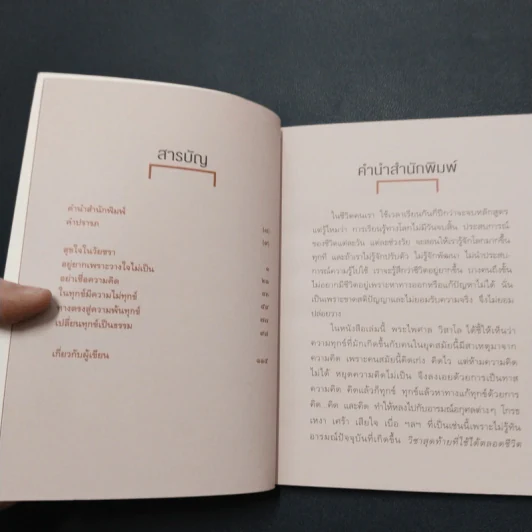 สารบัญ
คำนำสำนักพิมพ์
คำปรารภ
สุขใจในวัยชรา
อยู่ยากเพราะวางใจไม่เป็น
อย่าเชื่อความคิด
ในทุกข์มีความไม่ทุกข์
ทางตรงสู่ความพ้นทุกข์
เปลี่ยนทุกข์เป็นธรรม
เกี่ยวกับผู้เขียน
๑
๒๑
๕๔
๑๑๕
คำนำสำนักพิมพ์
ในชีวิตคนเรา ใช้เวลาเรียนกันกี่ปีกว่าจะจบหลักสูตร
แต่รู้ไหมว่า การเรียนรู้ทางโลกไม่มีวันจบสิ้น ประสบการณ์
ของชีวิตแต่ละวัน แต่ละช่วงวัย จะสอนให้เรารู้จักโลกมากขึ้น
ทุกที และถ้าเราไม่รู้จักปรับตัว ไม่รู้จักพัฒนา ไม่นำประสบ-
การณ์ความรู้ไปใช้ เราจะรู้สึกว่าชีวิตอยู่ยากขึ้น บางคนถึงขั้น
ไม่อยากมีชีวิตอยู่เพราะหาทางออกหรือแก้ปัญหาไม่ได้ นั่น
เป็นเพราะขาดสติปัญญาและไม่ยอมรับความจริง จึงไม่ยอม
ปล่อยวาง
ในหนังสือเล่มนี้ พระไพศาล วิสาโล ได้ชี้ให้เห็นว่า
ความทุกข์ที่มักเกิดขึ้นกับคนในยุคสมัยนี้มีสาเหตุมาจาก
ความคิด เพราะคนสมัยนี้คิดเก่ง คิดไว แต่ห้ามความคิด
ไม่ได้ หยุดความคิดไม่เป็น จึงลงเอยด้วยการเป็นทาส
ความคิด คิดแล้วก็ทุกข์ ทุกข์แล้วหาทางแก้ทุกข์ด้วยการ
คิด คิด และคิด ทำให้หลงไปกับอารมณ์อกุศลต่างๆ โกรธ
เหงา เศร้า เสียใจ เบื่อ ฯลฯ ที่เป็นเช่นนี้เพราะไม่รู้ทัน
อารมณ์ปัจจุบันที่เกิดขึ้น วิชาสุดท้ายที่ใช้ได้ตลอดชีวิต